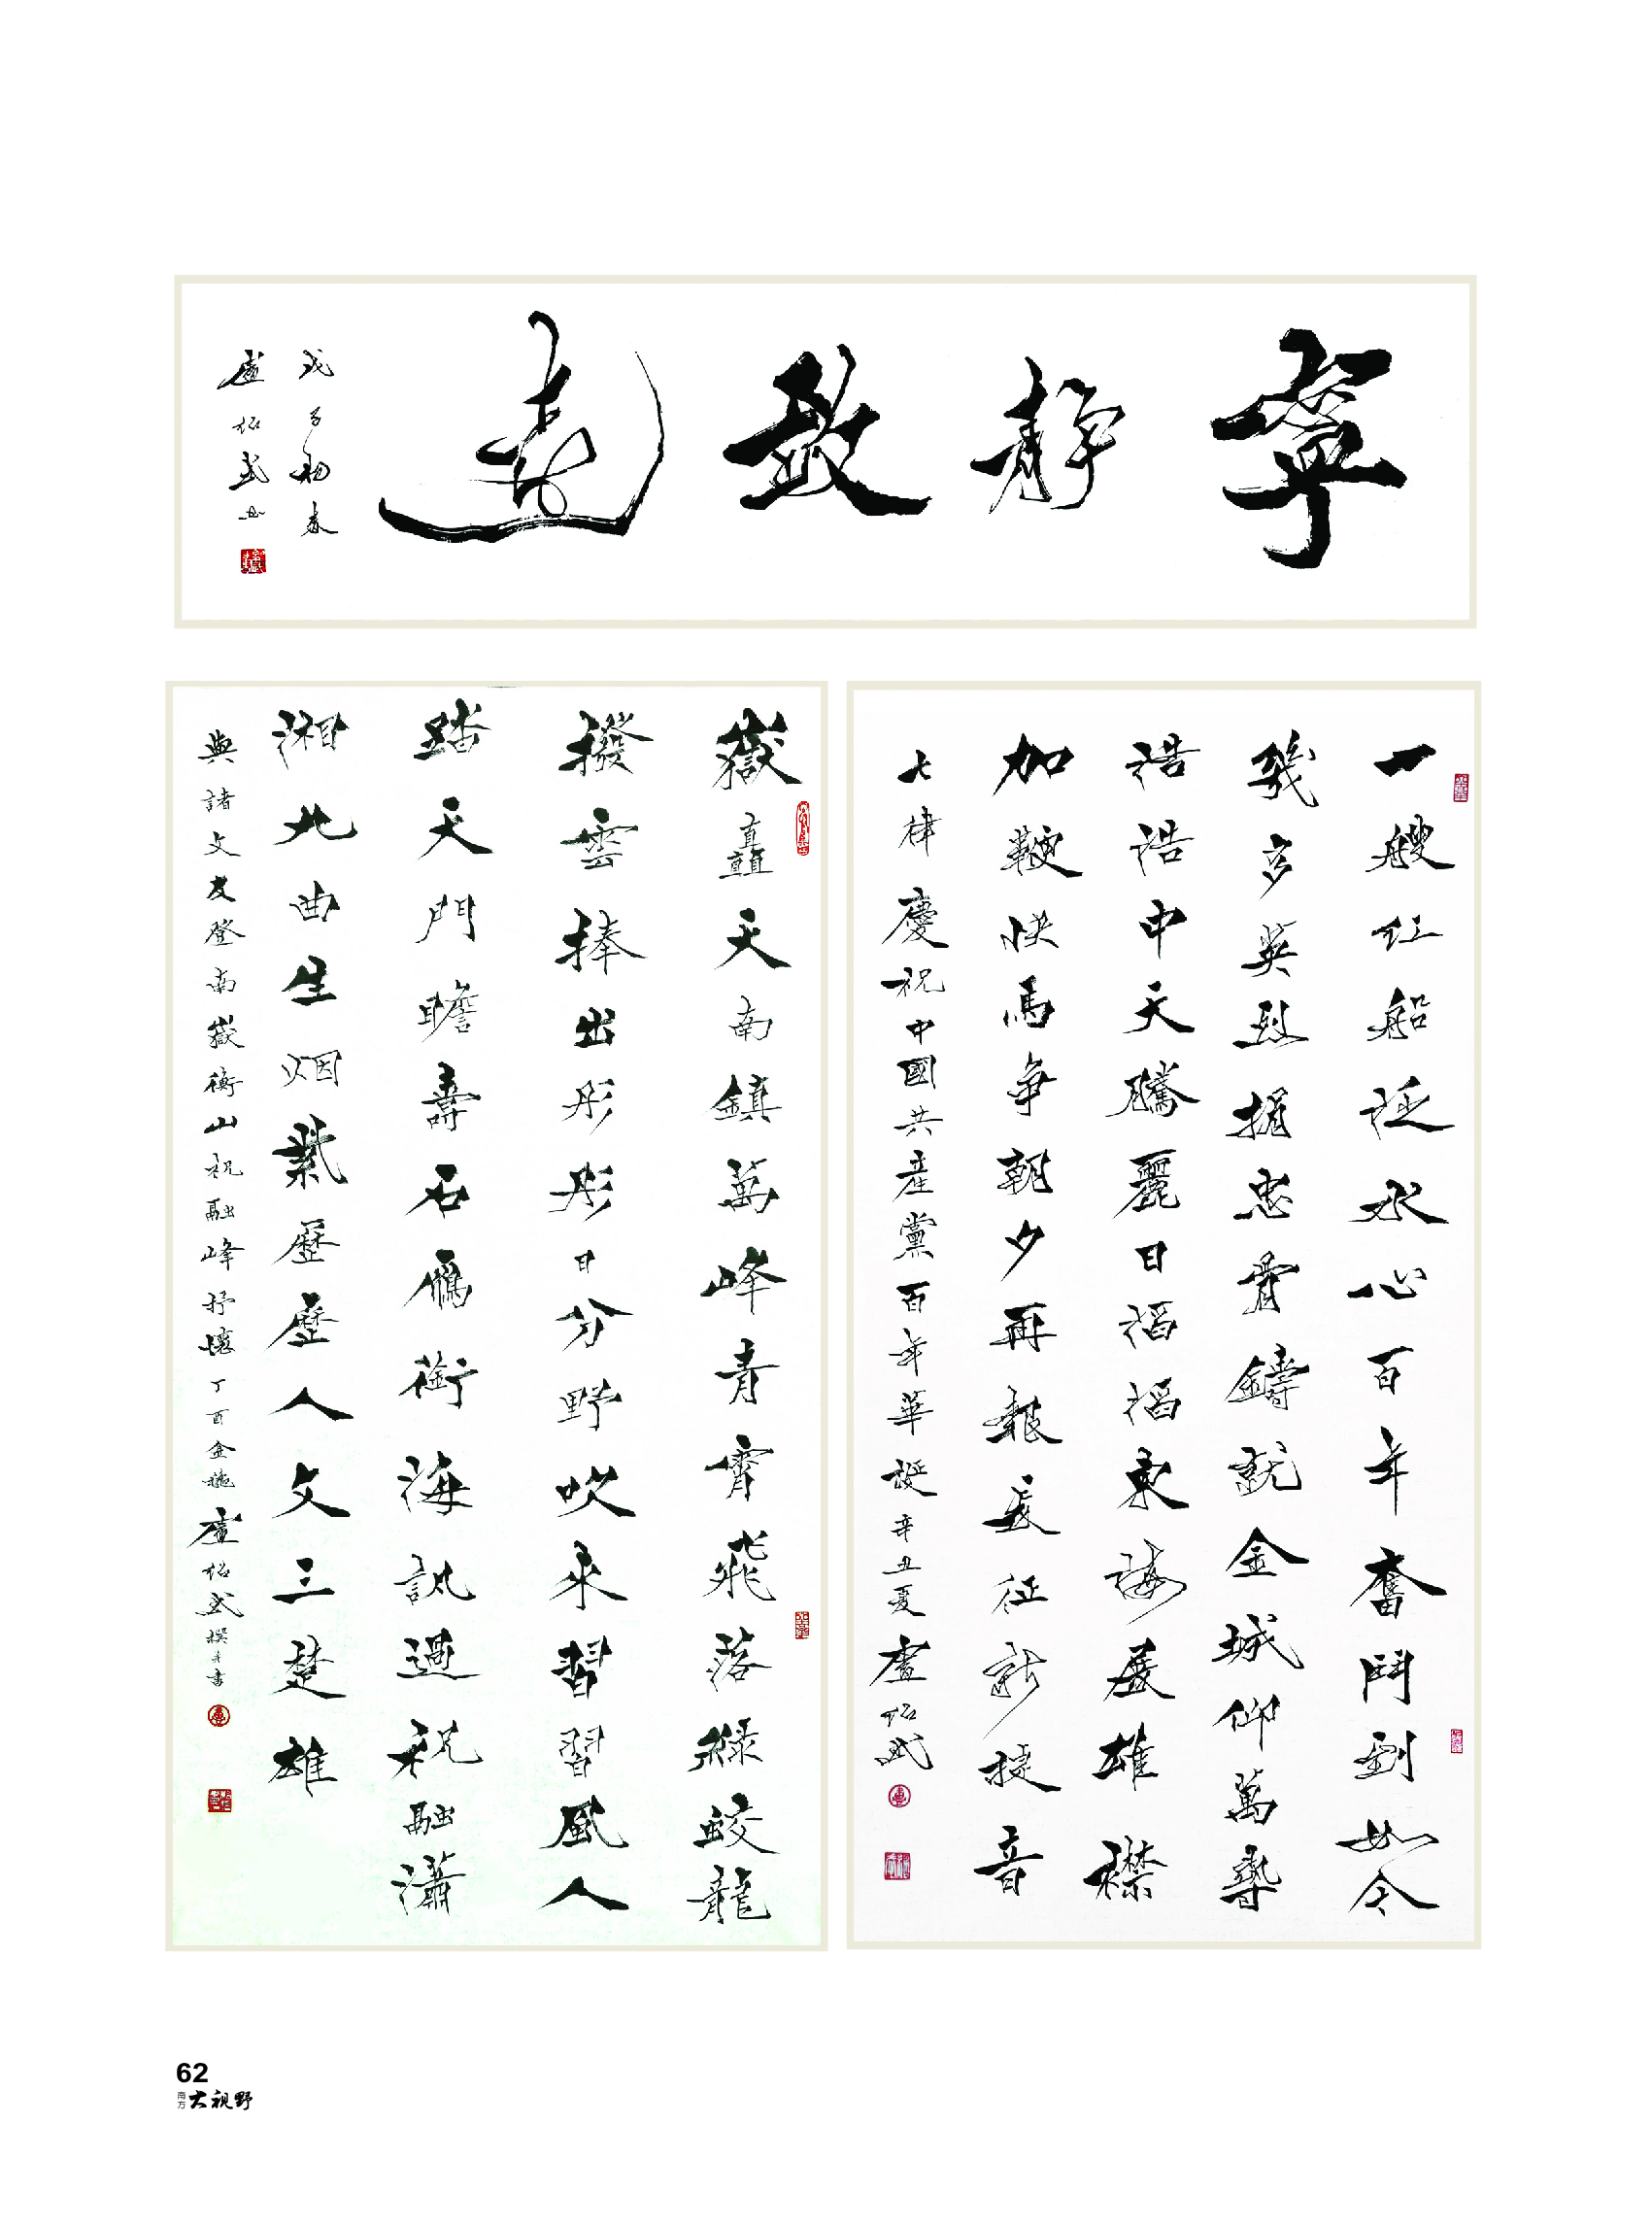 寧靜致遠
戊子初春
盧紹武書
一艘红船泛水心百年奮鬥到如今
幾多英烈捐忠骨鑄就金城仰萬尋
浩浩中天騰麗日滔滔東海展雄襟
加鞭快馬爭朝夕再報長征新捷音
七律慶祝中國共産黨百年華誕辛丑夏盧紹武
嶽矗天南鎮萬峰青霄飛落緑蛟龍
撥雲捧出彤彤日分野吹來習習風人
踏天門瞻壽石鴈銜海訊過祝融瀟
湘北曲生烟氣歷歷人文三楚雄
與諸文友登南嶽衡山祝融峰抒懷丁酉金穐盧紹武撰并書
62
南方大视野